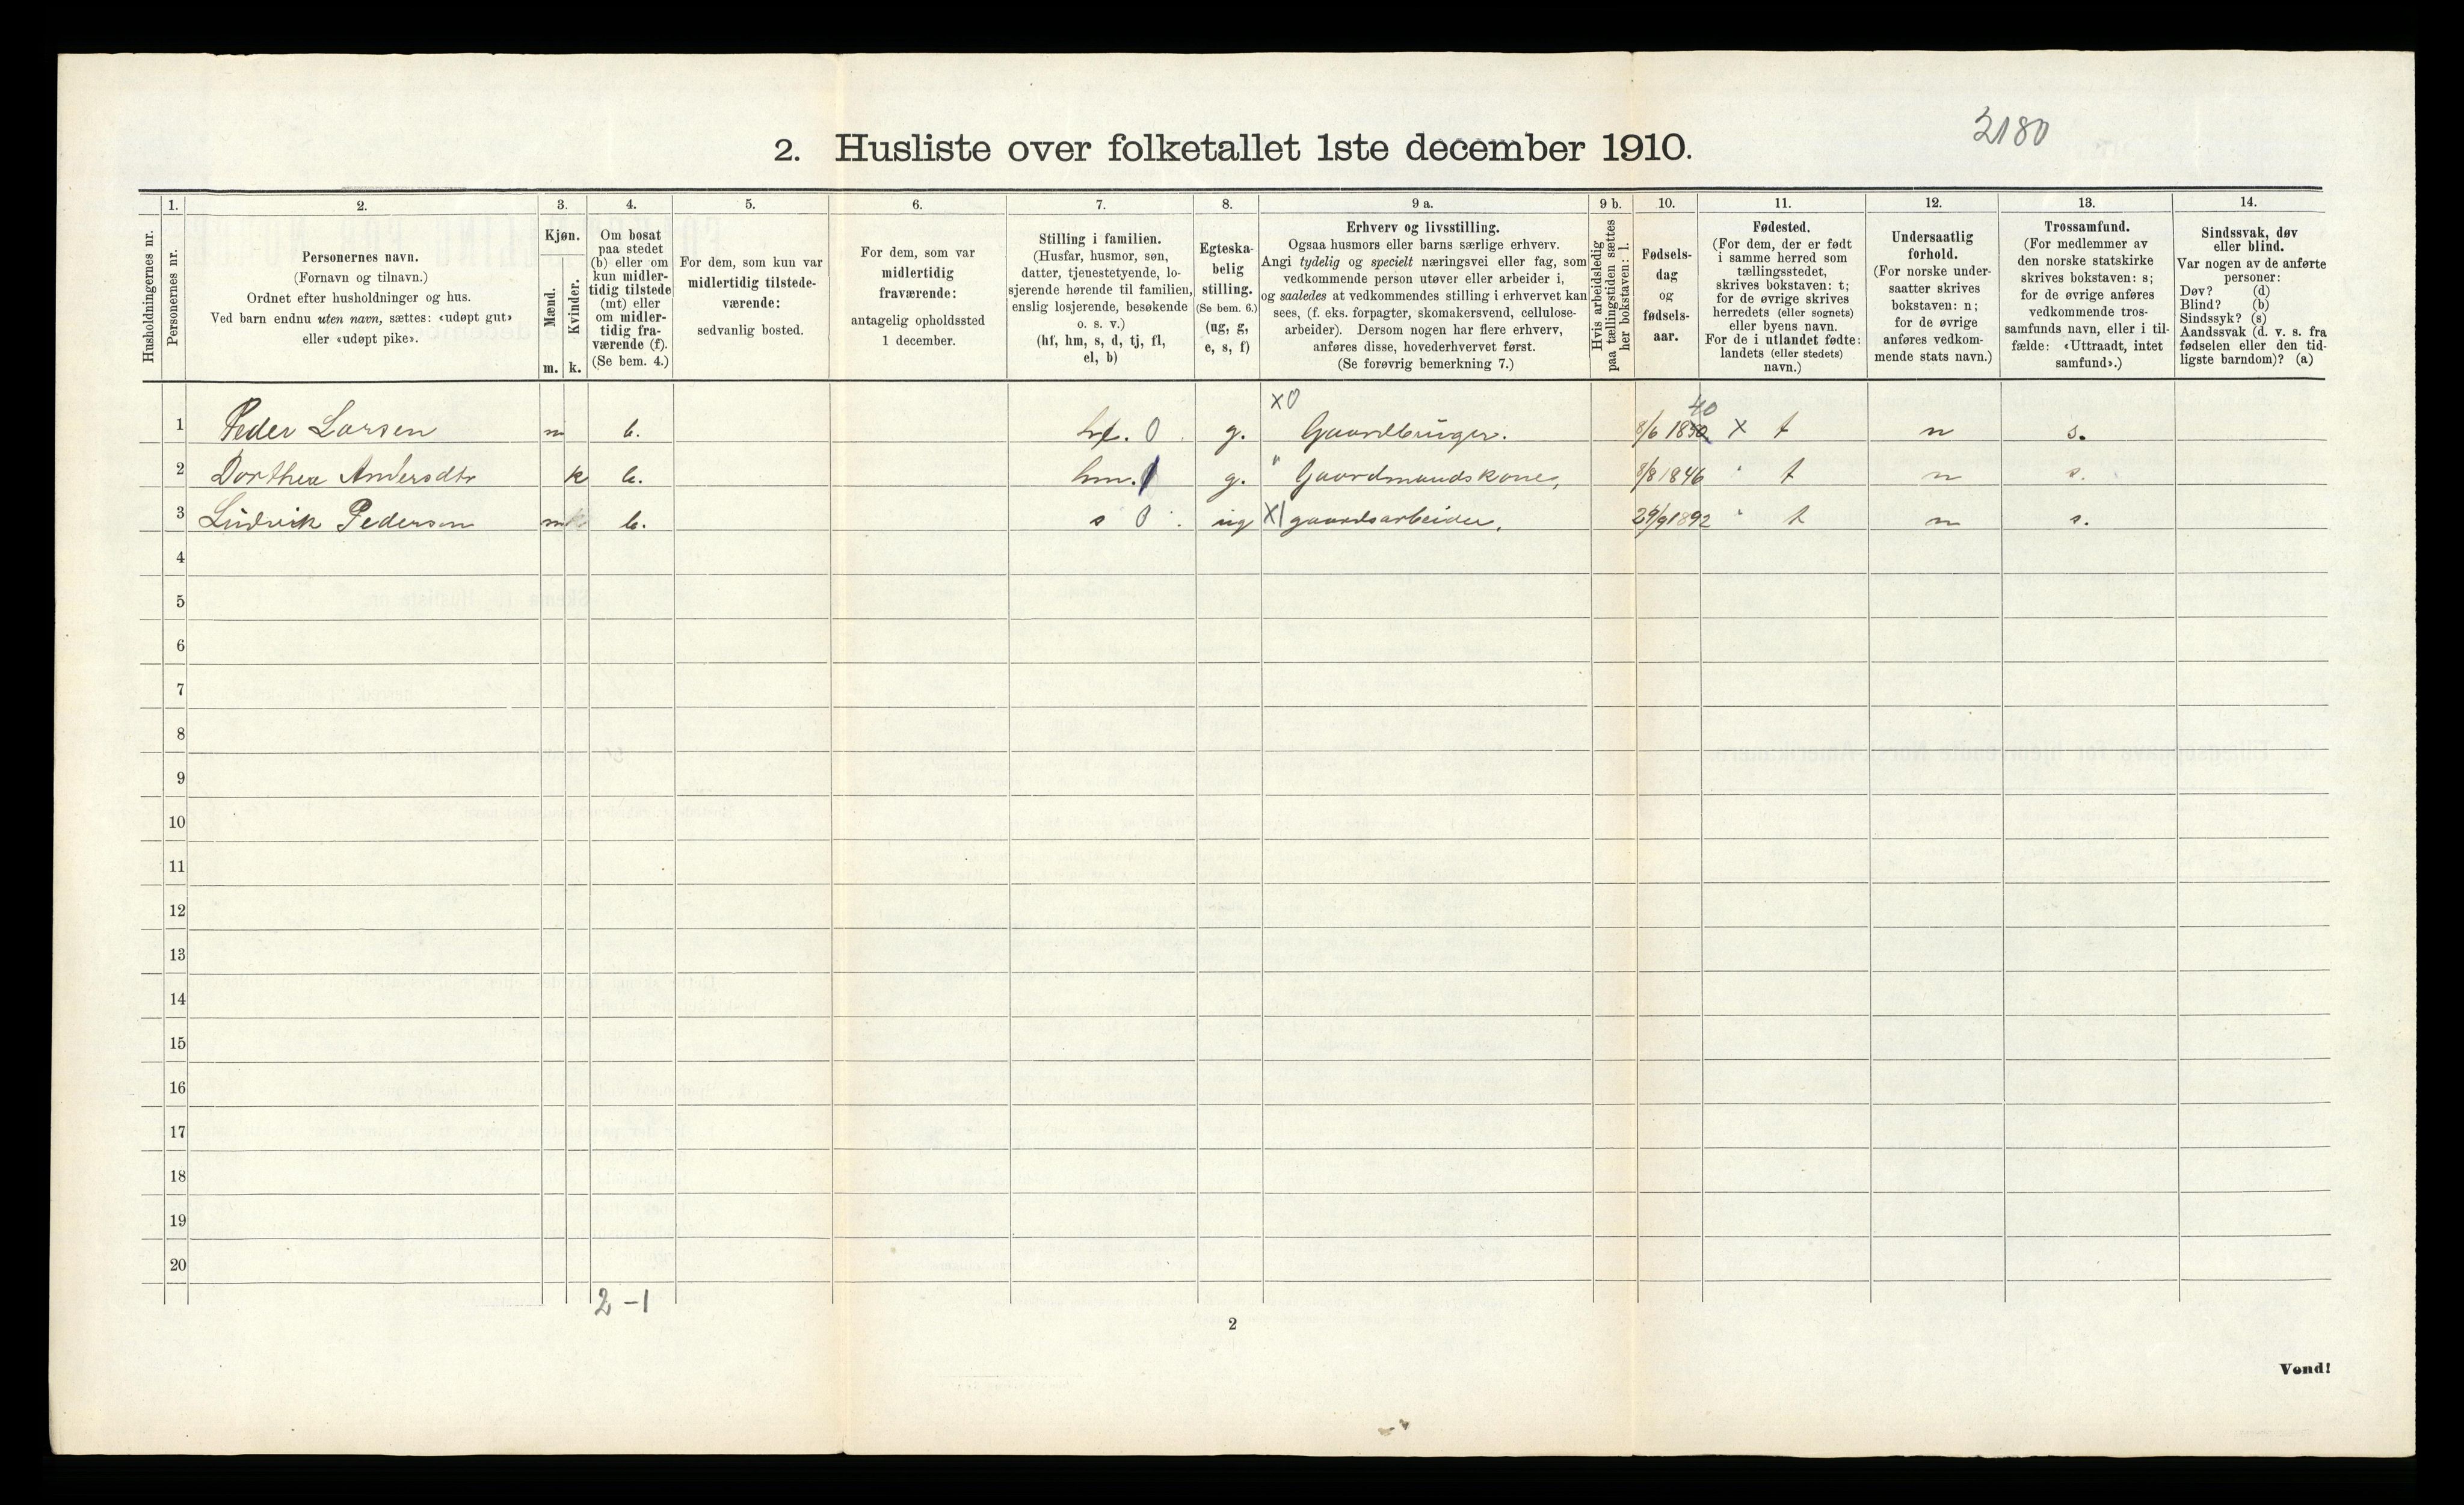 2180
2. Husliste over folketallet 1ste december 1910.
Husholdningernes nr.
1.
Personernes nr.
2.
Personernes navn.
(Fornavn og tilnavn.)
Ordnet efter husholdninger og hus.
Ved barn endnu uten navn, sættes: «udøpt gut»
eller «udøpt pike».
3.
Kjøn.
Mænd.
Kvinder.
m. k.
4.
Om bosat
paa stedet
(b) eller om
kun midler-
tidig tilstede
(mt) eller
om midler-
tidig fra-
værende (f).
(Se bem. 4.)
5.
For dem, som kun var
midlertidig tilstede-
værende:
sedvanlig bosted.
6.
For dem, som var
midlertidig
fraværende:
antagelig opholdssted
1 december.
7.
Stilling i familien.
(Husfar, husmor, søn,
datter, tjenestetyende, lo-
sjerende hørende til familien,
enslig losjerende, besøkende
o. s. v.)
(hf, hm, s, d, tj, fl,
el, b)
8.
Egteska-
belig
stilling.
(Se bem. 6.)
(ug, g,
e, s, f)
9 a.
Erhverv og livsstilling.
Ogsaa husmors eller barns særlige erhverv.
Angi tydelig og specielt næringsvei eller fag, som
vedkommende person utøver eller arbeider i,
og saaledes at vedkommendes stilling i erhvervet kan
sees, (f. eks. forpagter, skomakersvend, cellulose-
arbeider). Dersom nogen har flere erhverv,
anføres disse, hovederhvervet først.
(Se forøvrig bemerkning 7.)
9 b.
Hvis arbeidsledig
paa tællingstiden sættes
her bokstaven: l.
10.
Fødsels-
dag
og
fødsels-
aar.
11.
Fødested.
(For dem, der er født
i samme herred som
tællingsstedet,
skrives bokstaven: t;
for de øvrige skrives
herredets (eller sognets)
eller byens navn.
For de i utlandet fødte:
landets (eller stedets)
navn.)
12.
Undersaatlig
forhold.
(For norske under-
saatter skrives
bokstaven: n;
for de øvrige
anføres vedkom-
mende stats navn.)
13.
Trossamfund.
(For medlemmer av
den norske statskirke
skrives bokstaven: s;
for de øvrige anføres
vedkommende tros-
samfunds navn, eller i til-
fælde: «Uttraadt, intet
samfund».)
14.
Sindssvak, døv
eller blind.
Var nogen av de anførte
personer:
Døv? (d)
Blind? (b)
Sindssyk? (s)
Aandssvak (d. v. s. fra
fødselen eller den tid-
ligste barndom)? (a)
X0 40
1 Peder Larsen m b. hf. 0 g. Gaardbruger. 8/6 1850 X t n s.
2 Dorthea Andersdtr k b. hm. g. " Gaardmandskone, 8/8 1846 " t n s.
3 Ludvik Pedersen m b. s 0 ug X1 gaardsarbeider, 29/9 1892 " t n s.
4
5
6
7
8
9
10
11
12
13
14
15
16
17
18
19
20
2-1
2
Vend!